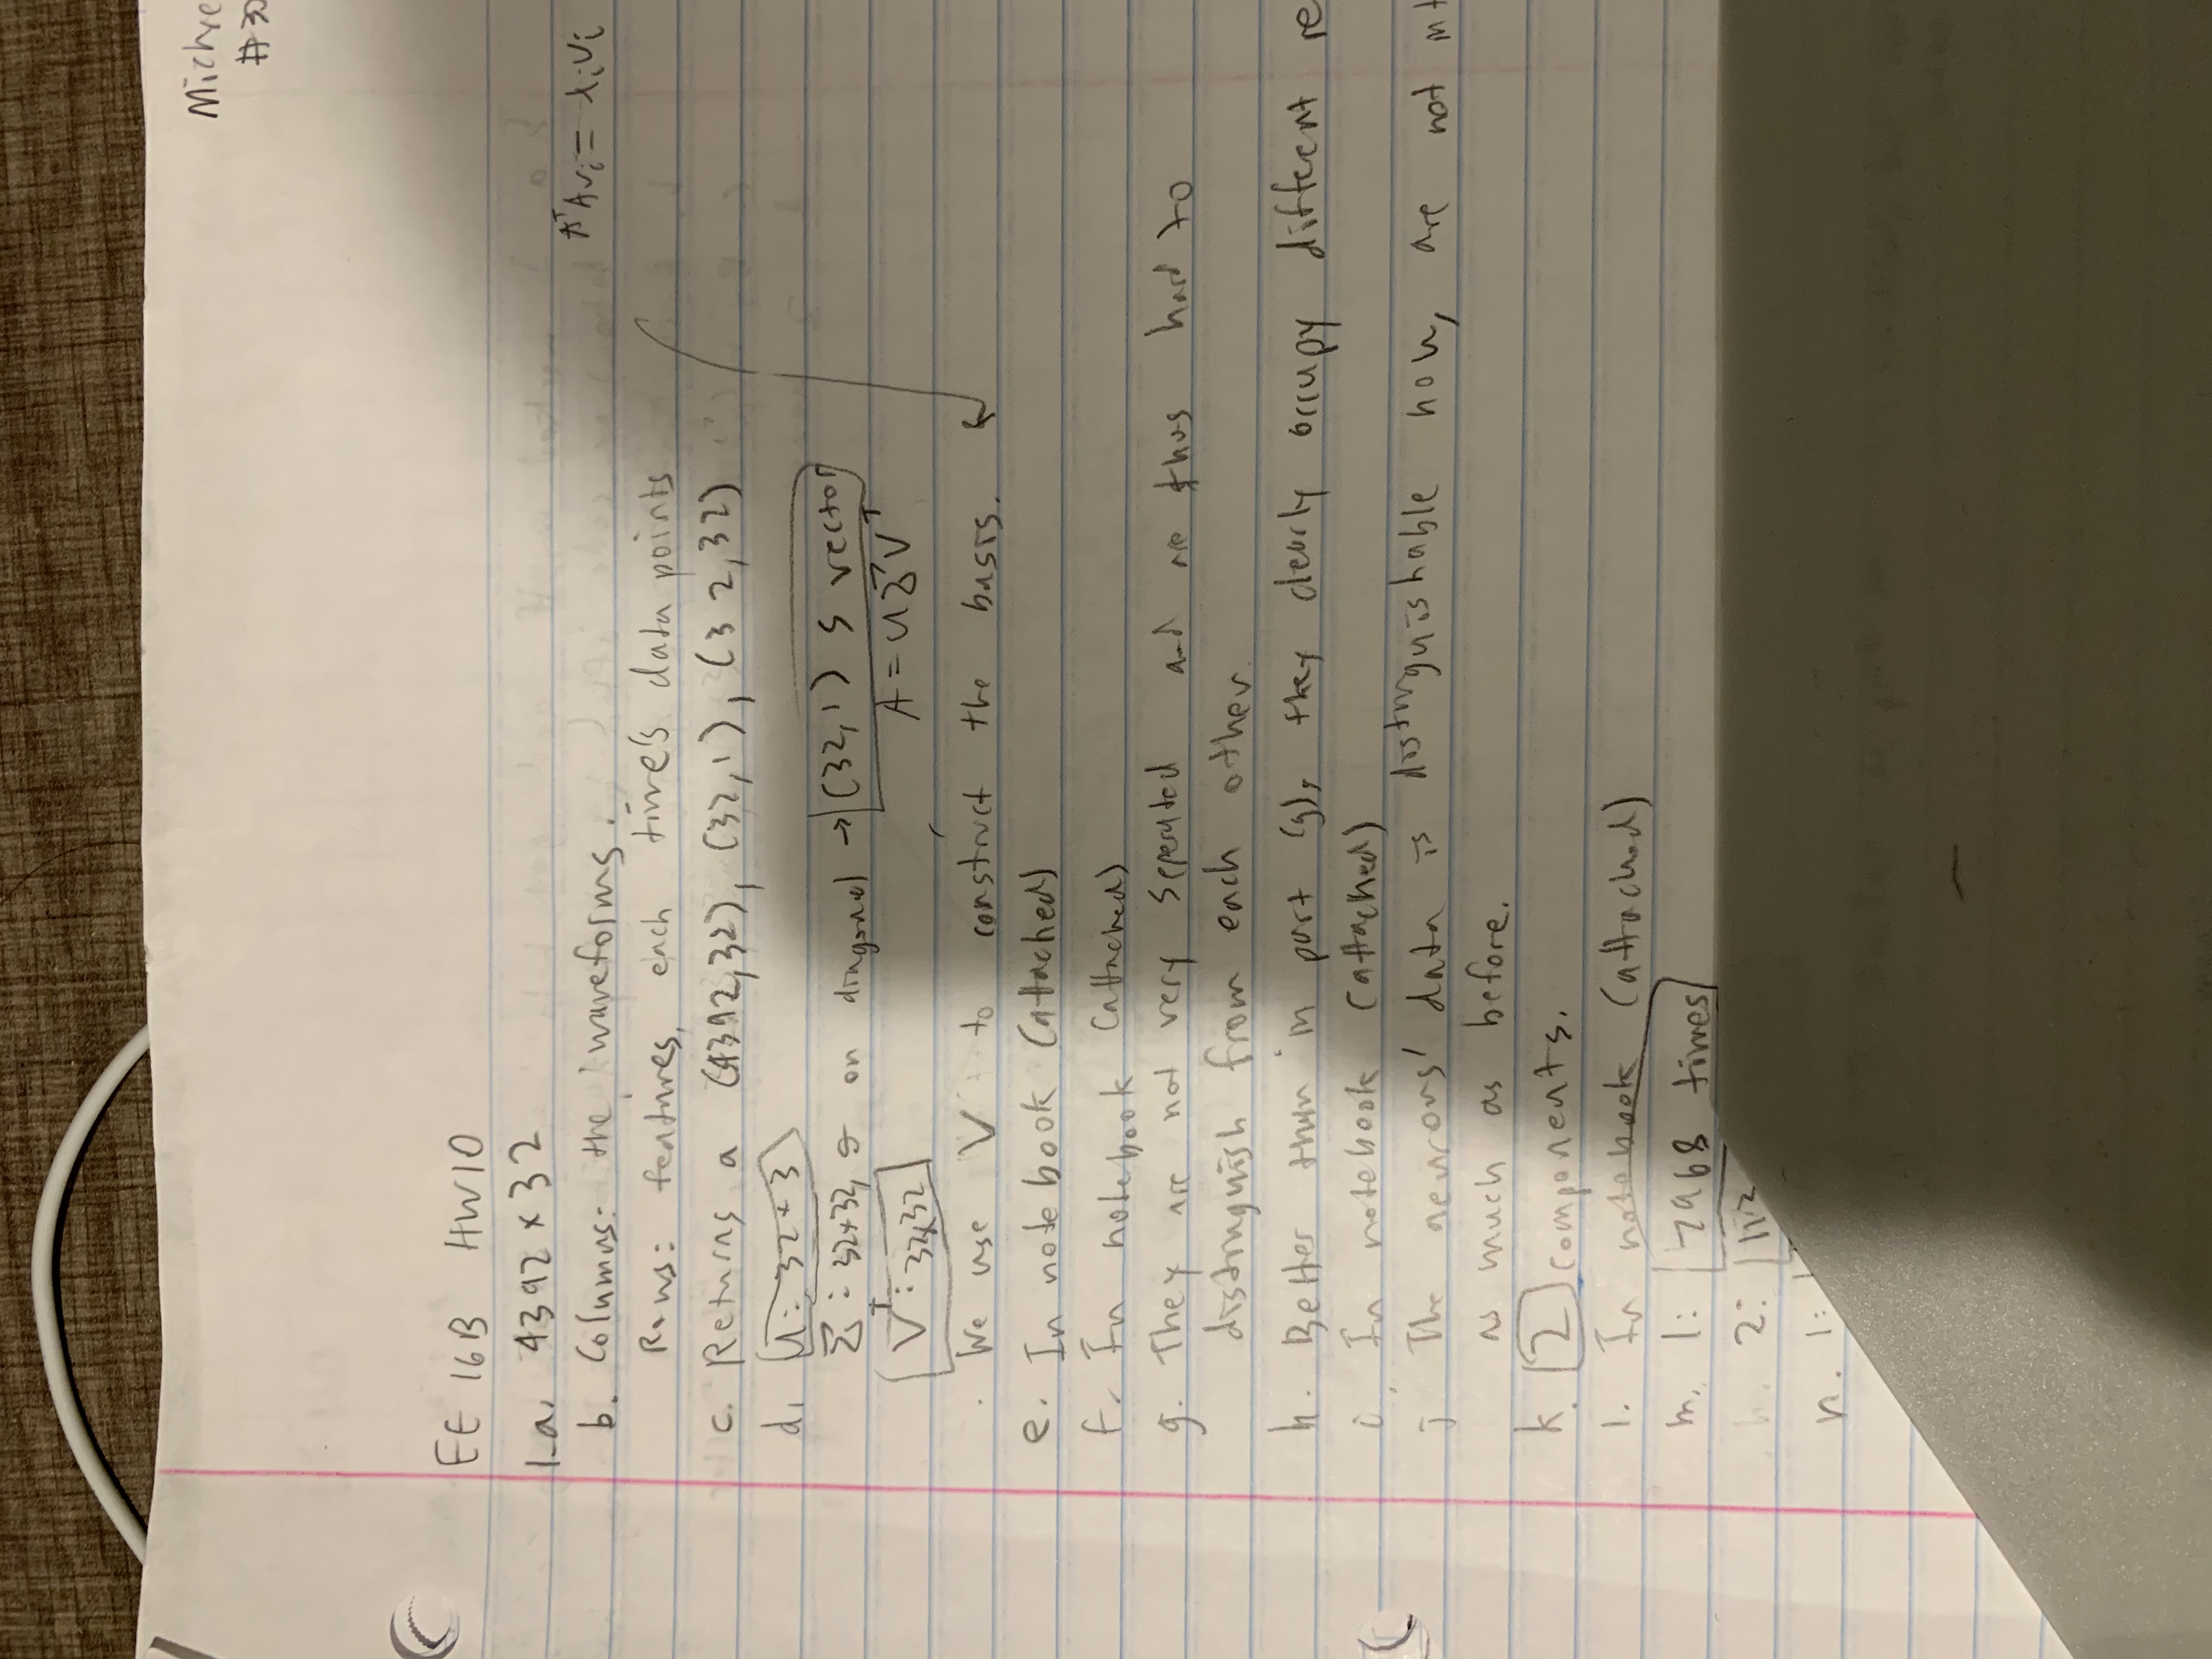 Michae
#30
EE 16B HW10
1.a. 4392 x 32
AᵀAvᵢ = λᵢvᵢ
b. Columns: the waveforms.
Rows: features, each time's data points
c. Returns a (4392,32), (32,1), (32,32)
d. U: 32x3
Σ: 32x32, σ on diagonal → (32,1) S vector
Vᵀ: 32x32 A = UΣVᵀ
We use V to construct the basis.
e. In notebook (attached)
f. In notebook (attached)
g. They are not very seperated and are thus hard to
distinguish from each other.
h. Better than in part (g), they clearly occupy different re
i. In notebook (attached)
j The neurons' data is distinguishable now, are not int
as much as before.
k. 2 components.
l. In notebook (attached)
m. 1: 7968 times
2: 112
n. 1: